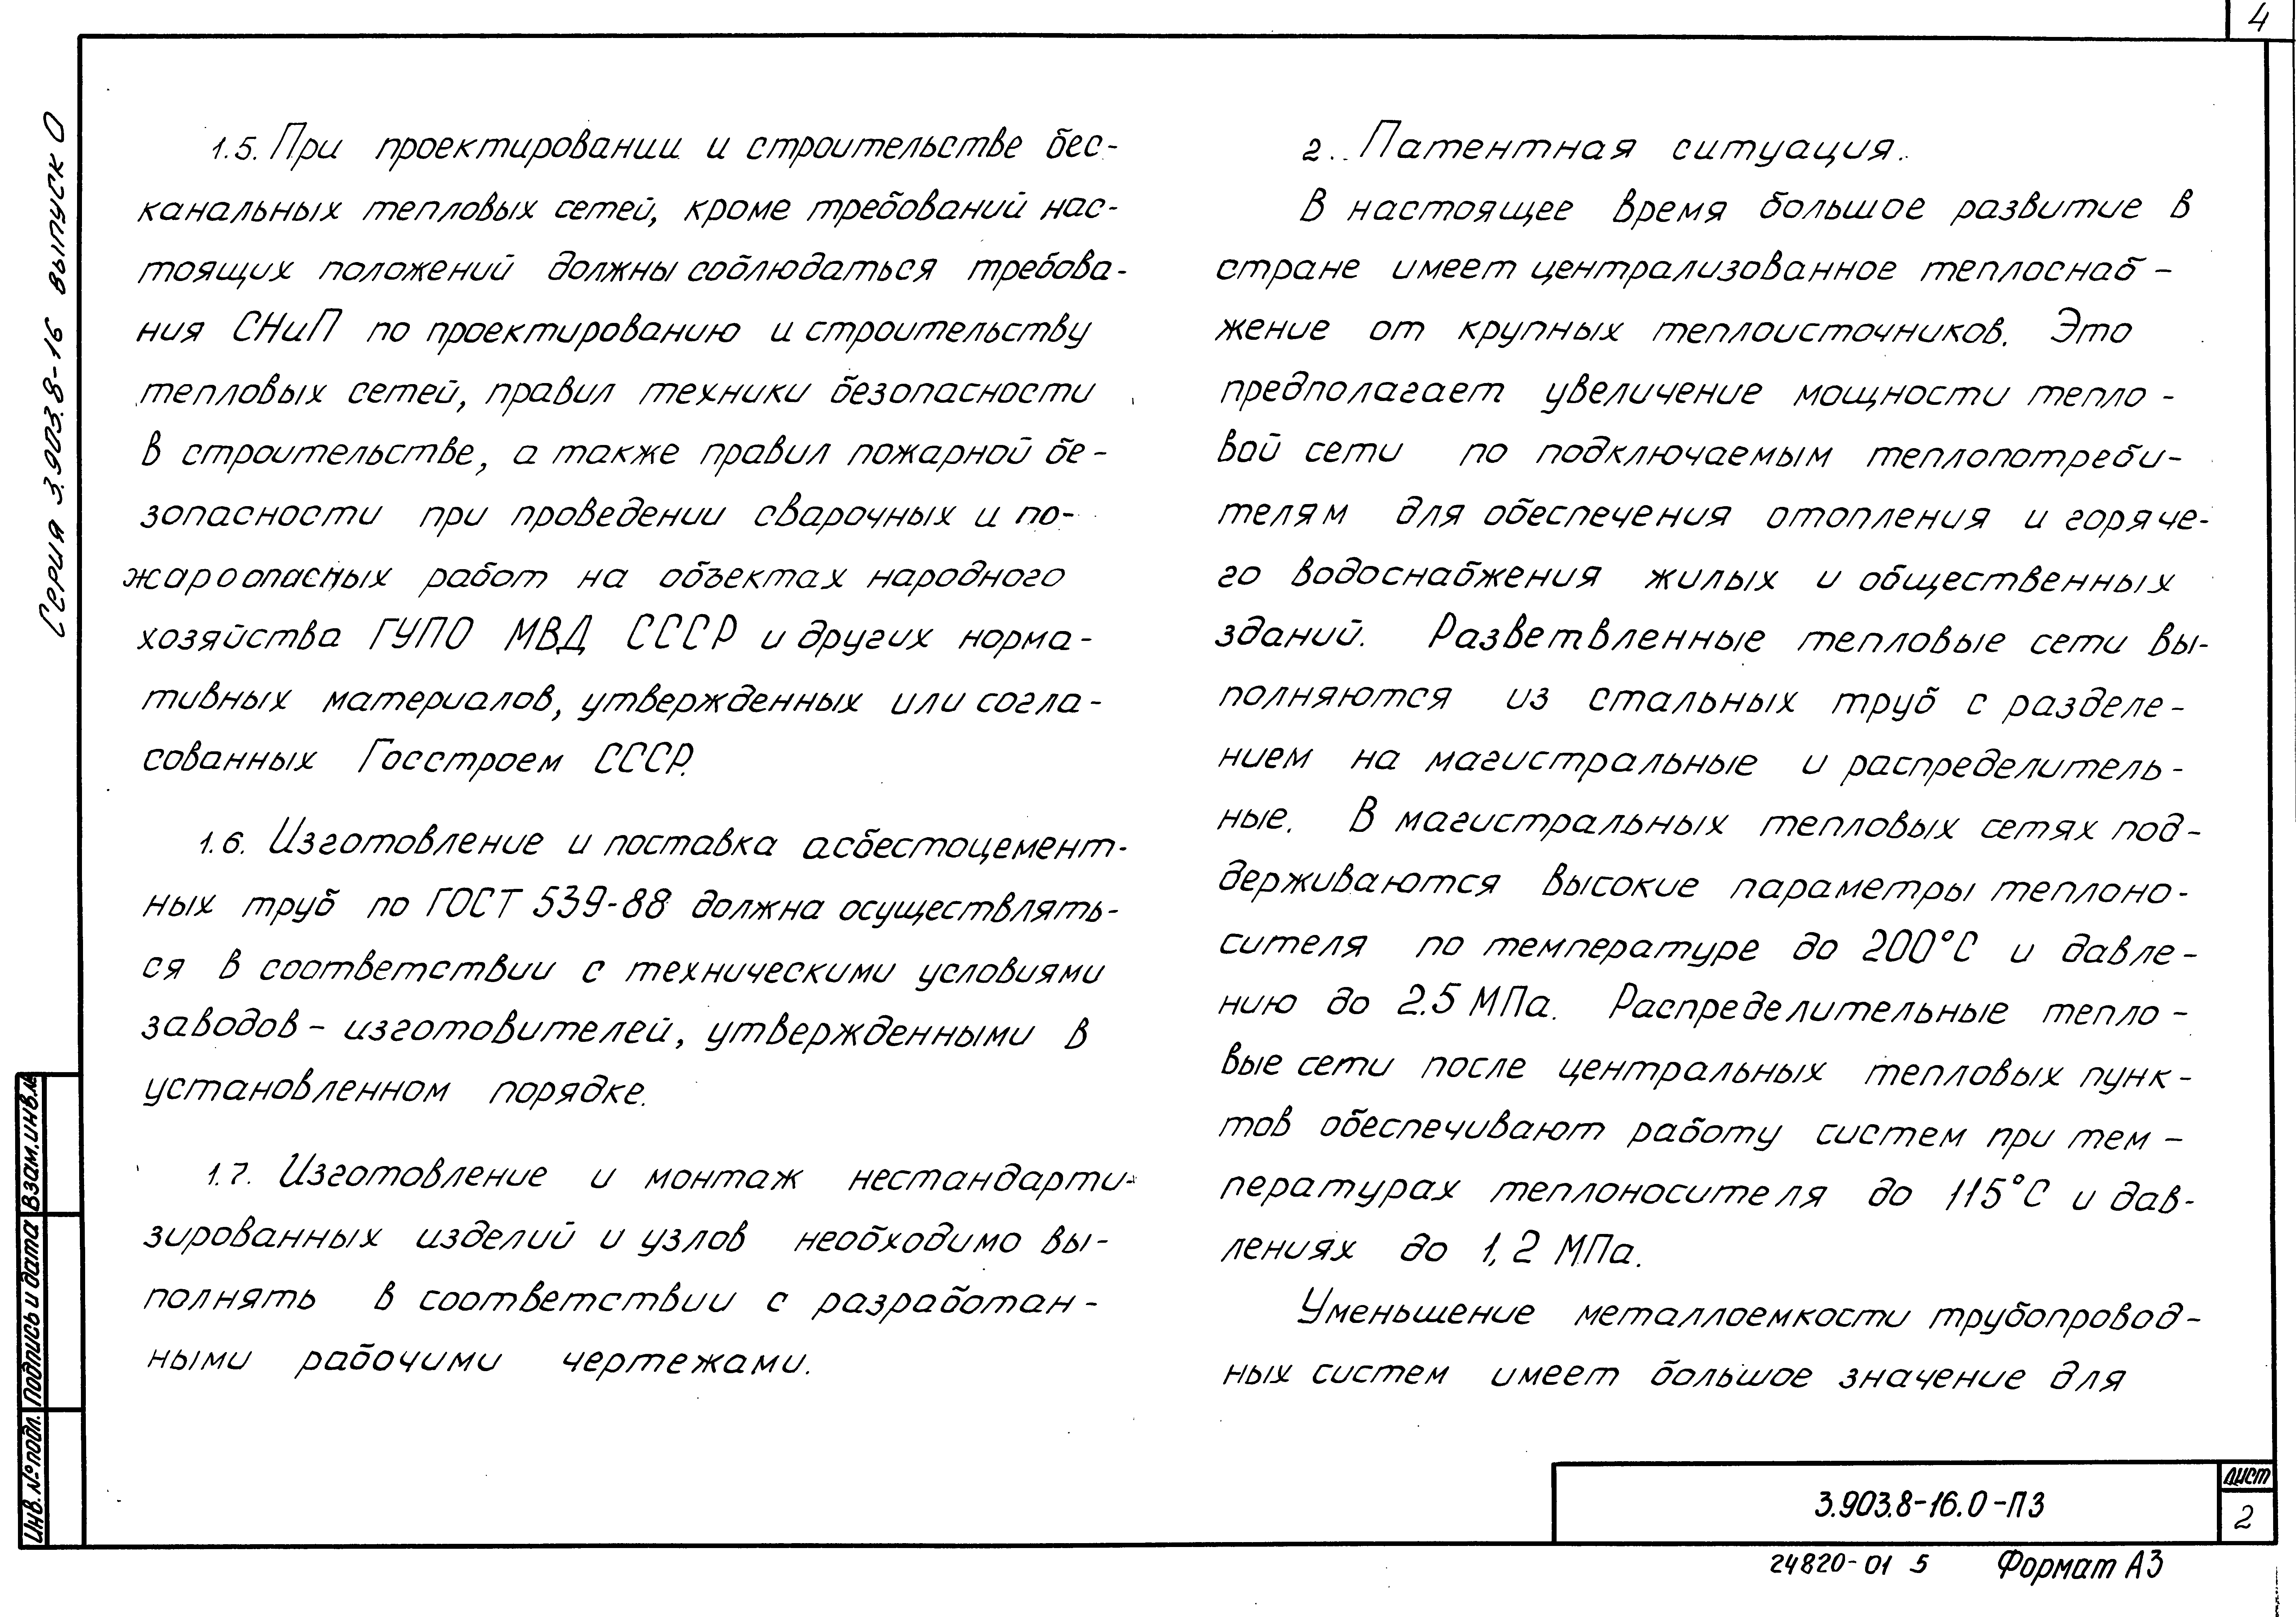 4
Серия 3.903.8-16 выпуск 0
1.5. При проектировании и строительстве бес-
канальных тепловых сетей, кроме требований нас-
тоящих положений должны соблюдаться требова-
ния СНиП по проектированию и строительству
тепловых сетей, правил техники безопасности
в строительстве, а также правил пожарной бе-
зопасности при проведении сварочных и по-
жароопасных работ на объектах народного
хозяйства ГУПО МВД СССР и других норма-
тивных материалов, утвержденных или согла-
сованных Госстроем СССР.
1.6. Изготовление и поставка асбестоцемент-
ных труб по ГОСТ 539-88 должна осуществлять-
ся в соответствии с техническими условиями
заводов - изготовителей, утвержденными в
установленном порядке.
1.7. Изготовление и монтаж нестандарти-
зированных изделий и узлов необходимо вы-
полнять в соответствии с разработан-
ными рабочими чертежами.
2. Патентная ситуация.
В настоящее время большое развитие в
стране имеет централизованное теплоснаб-
жение от крупных теплоисточников. Это
предполагает увеличение мощности тепло-
вой сети по подключаемым теплопотреби-
телям для обеспечения отопления и горяче-
го водоснабжения жилых и общественных
зданий. Разветвленные тепловые сети вы-
полняются из стальных труб с разделе-
нием на магистральные и распределитель-
ные. В магистральных тепловых сетях под-
держиваются высокие параметры теплоно-
сителя по температуре до 200°С и давле-
нию до 2.5 МПа. Распределительные тепло-
вые сети после центральных тепловых пунк-
тов обеспечивают работу систем при тем-
пературах теплоносителя до 115°С и дав-
лениях до 1,2 МПа.
Уменьшение металлоемкости трубопровод-
ных систем имеет большое значение для
Инв. № подл. Подпись и дата Взам. инв. №
3.903.8-16.0-ПЗ
Лист
2
24820-01 5 Формат А3